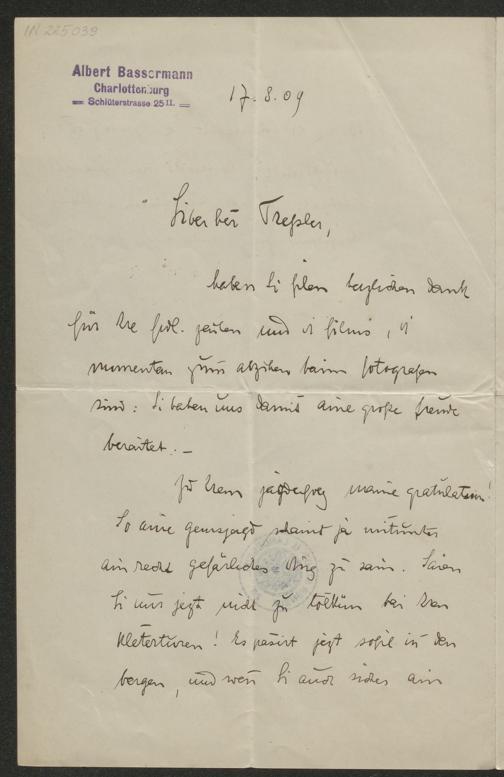 IN 225039
Albert Bassermann
Charlottenburg
Schlüterstrasse 25 II.
17. 8. 09
Liber her Treßler,
haben Si filen herzlichen Dank
für Ire frdl. zeilen und di films, di
momentan zum abzihen beim fotografen
sind: Si haben uns damit aine große freude
beraitet. –
Zu Irem jagderfolg maine gratulation!
So aine gemsjagd schaint ja mitunter
ain recht gefärliches Ding zu sain. Saien
Si nur jezt nicht zu tollkün bei Iren
klettertouren! Es passirt jezt sofil in den
bergen, und wenn Si auch sicher ain